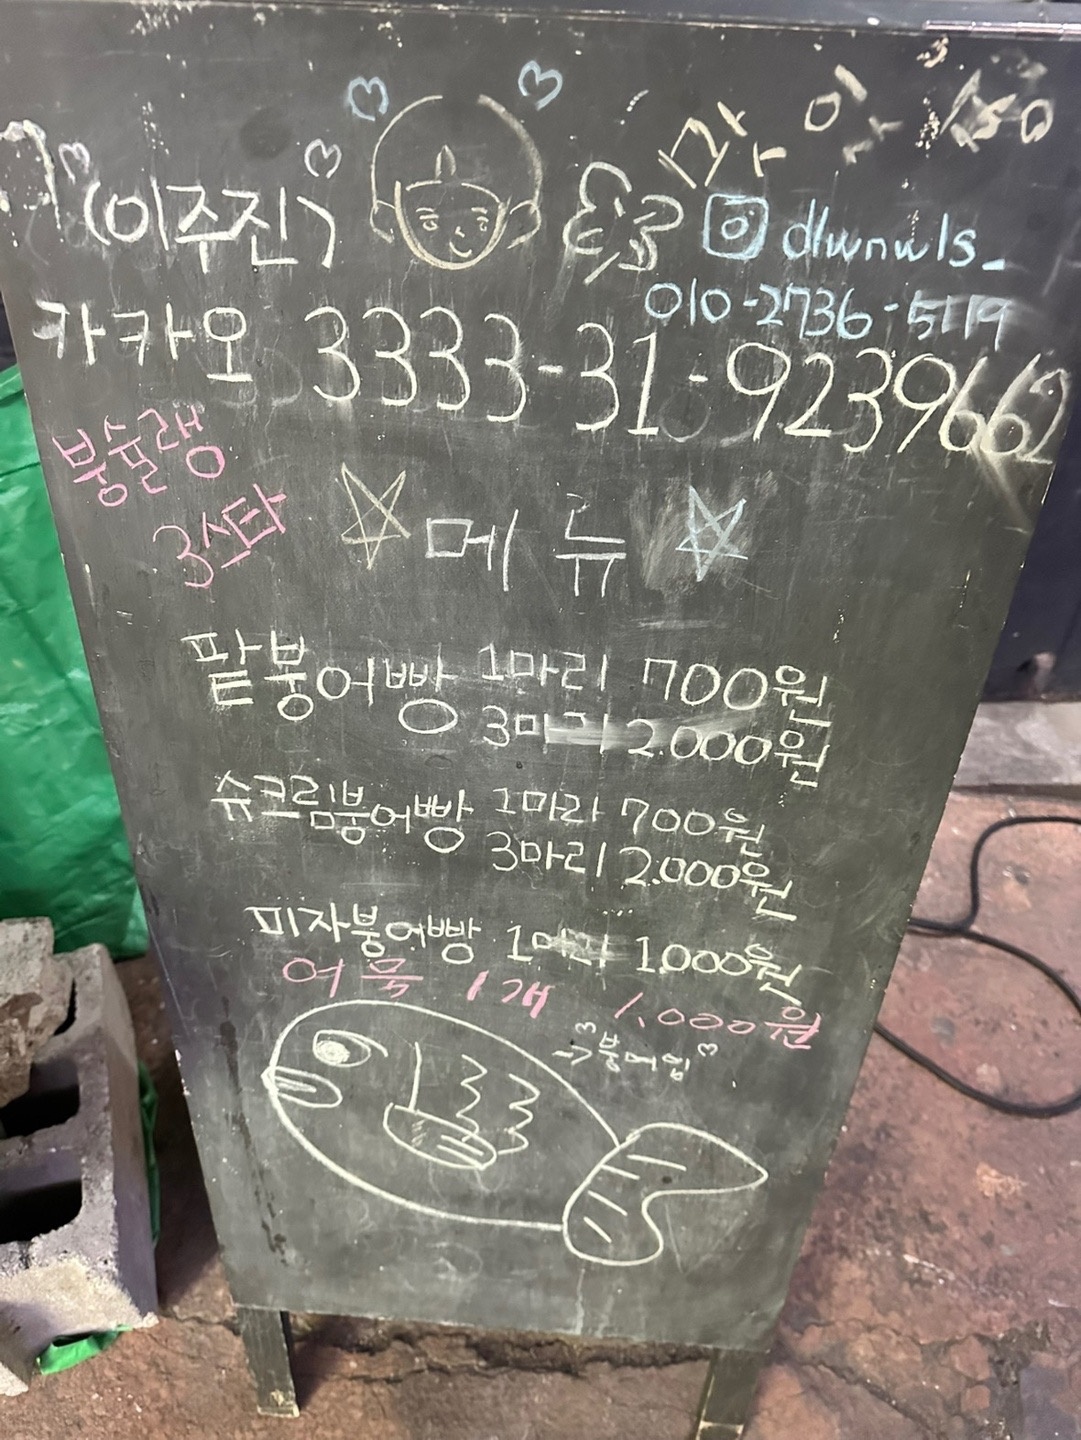 (이주진)
dlwnwls_
카카오 3333-31-9239662
붕슐랭
3스타
메뉴
팥붕어빵 1마리 700원
3마리 2.000원
슈크림붕어빵 1마리 700원
3마리 2.000원
피자붕어빵 1마리 1.000원
어묵 1개 1.000원
→붕어임